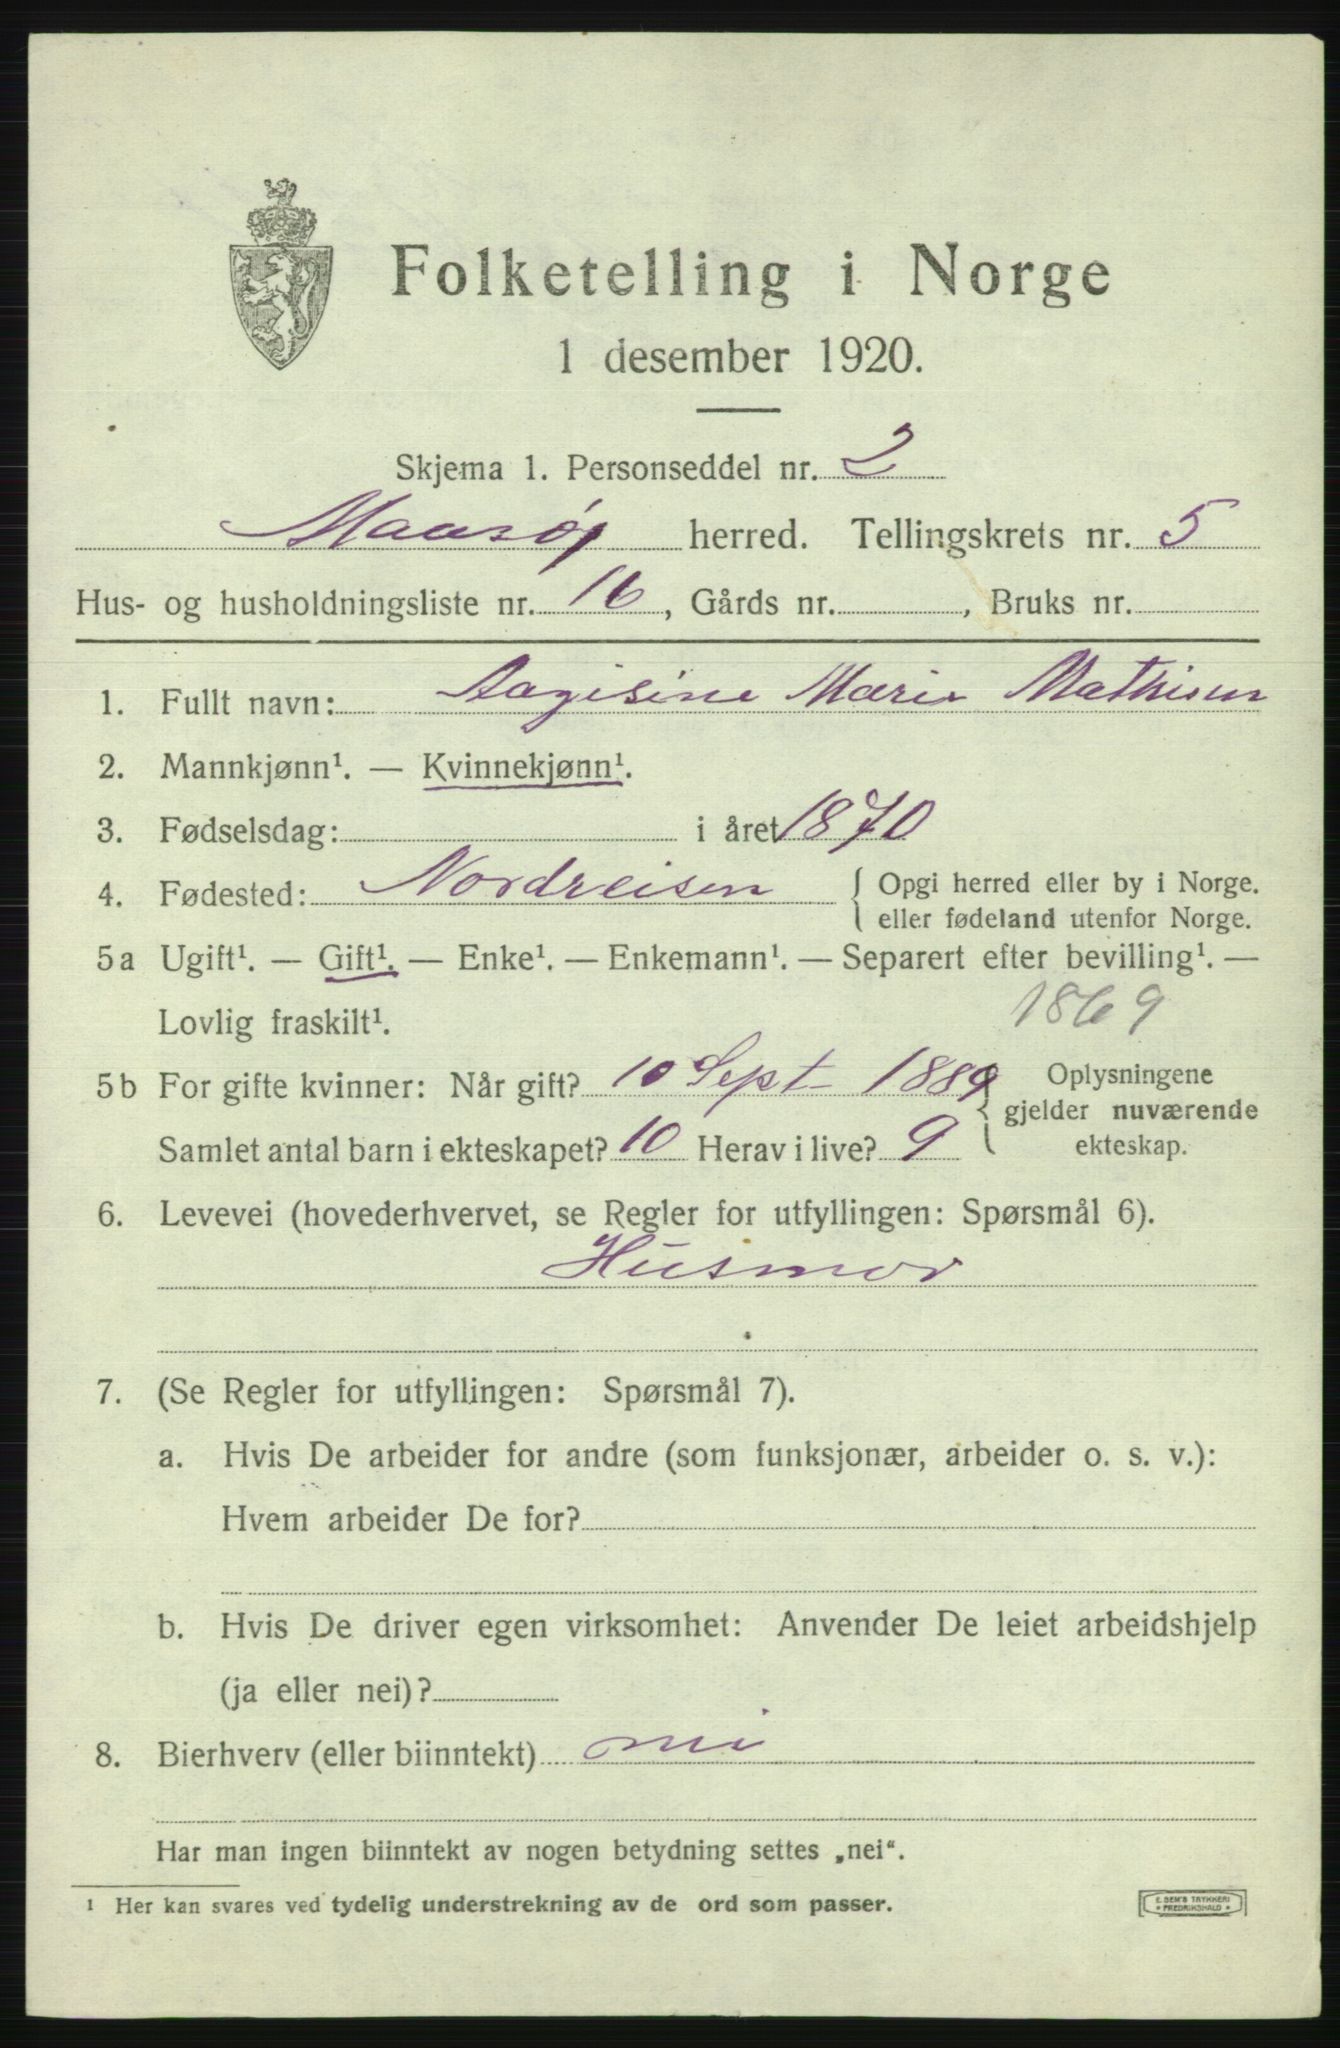 Folketelling i Norge
1 desember 1920.
Skjema 1. Personseddel nr. 2
Maasøy herred. Tellingskrets nr. 5
Hus- og husholdningsliste nr. 16, Gårds nr. , Bruks nr.
1. Fullt navn: Aagisine Marie Mathisen
2. Mannkjønn¹. — Kvinnekjønn¹.
3. Fødselsdag: i året 1870
4. Fødested: Nordreisen { Opgi herred eller by i Norge.
eller fødeland utenfor Norge.
5a Ugift¹. — Gift¹. — Enke¹. — Enkemann¹. — Separert efter bevilling¹. —
Lovlig fraskilt¹. 1869
5b For gifte kvinner: Når gift? 10 Sept 1889 { Oplysningene
gjelder nuværende
Samlet antal barn i ekteskapet? 10 Herav i live? 9 ekteskap.
6. Levevei (hovederhvervet, se Regler for utfyllingen: Spørsmål 6).
Husmor
7. (Se Regler for utfyllingen: Spørsmål 7).
a. Hvis De arbeider for andre (som funksjonær, arbeider o. s. v.):
Hvem arbeider De for?
b. Hvis De driver egen virksomhet: Anvender De leiet arbeidshjelp
(ja eller nei)?
8. Bierhverv (eller biinntekt) nei
Har man ingen biinntekt av nogen betydning settes „nei“.
¹ Her kan svares ved tydelig understrekning av de ord som passer.
E. SEM'S TRYKKERI
* FREDRIKSHALD *